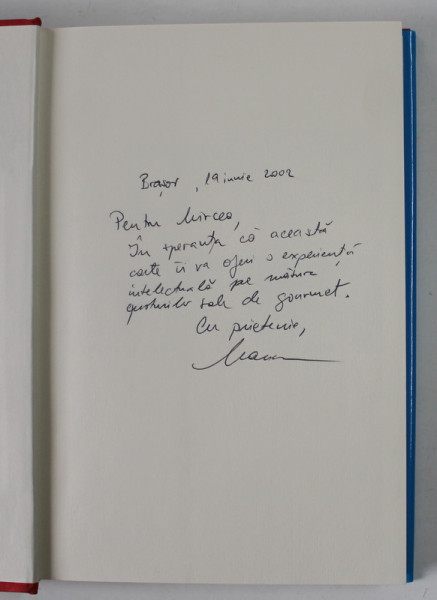 Brașov, 19 iunie 2002
Pentru Mircea,
În speranța că această
carte îi va oferi o experiență
intelectuală pe măsura
gusturilor sale de gourmet.
Cu prietenie,